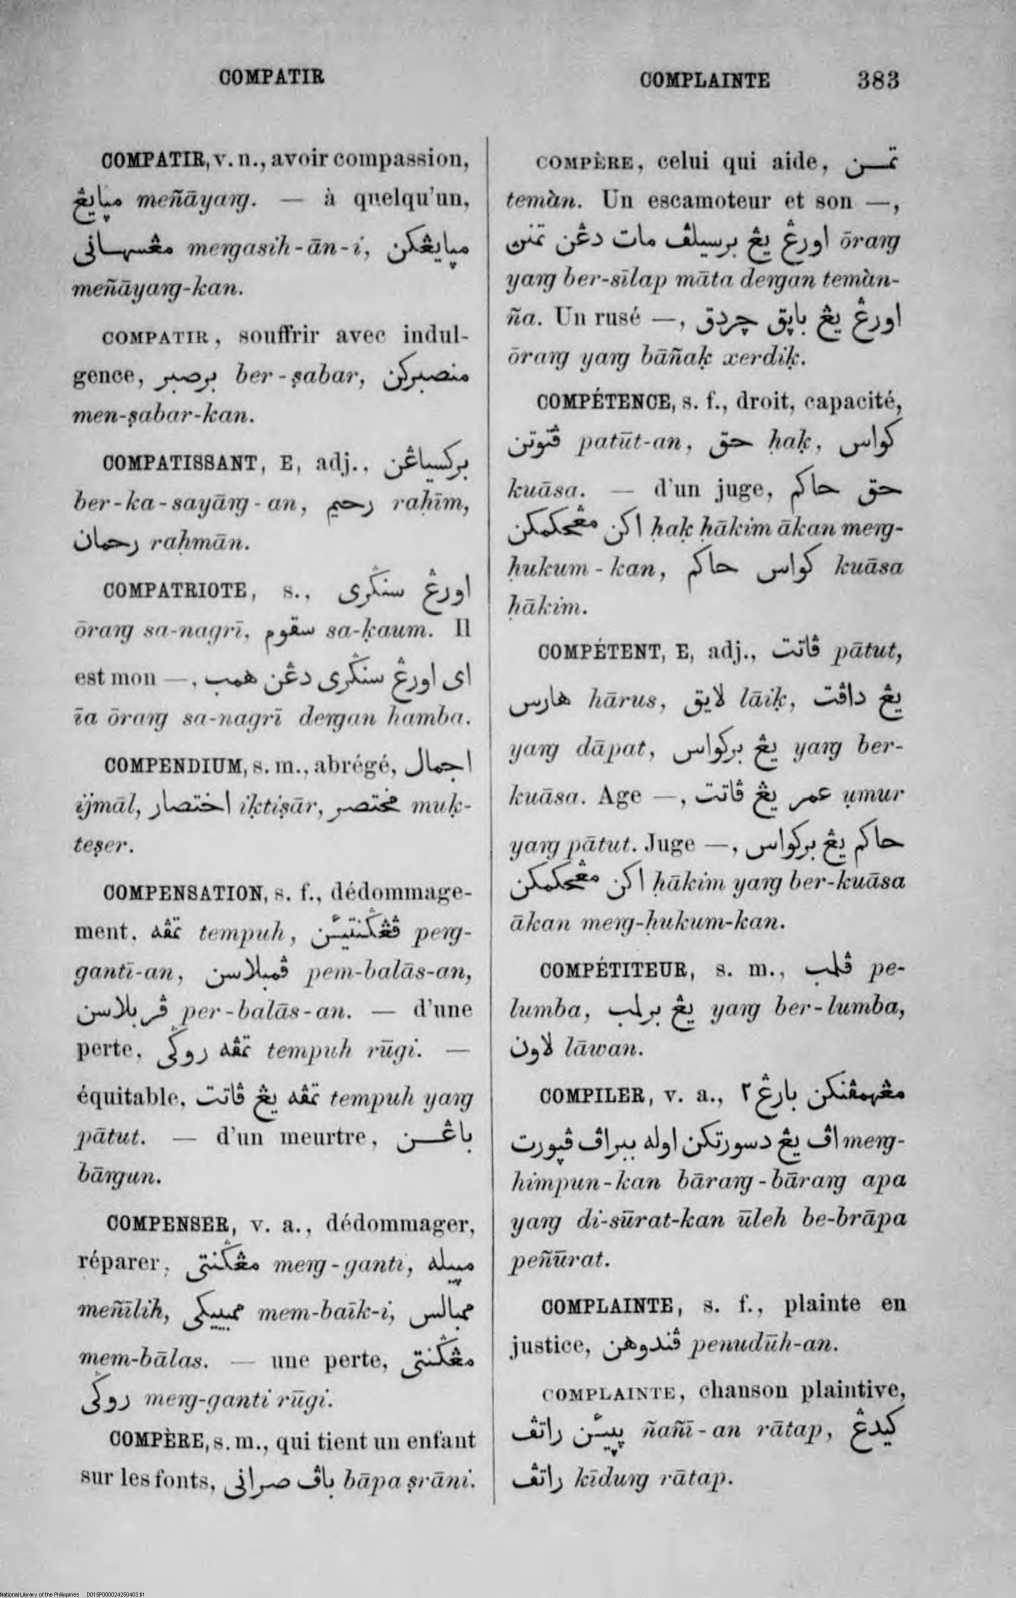 COMPATIR
COMPLAINTE 383
COMPATIR, v. n., avoir compassion,
مپايڠ meñāyaṛg. — à quelqu'un,
مڠسهـانی mergasih-ān-i, مپايڠكن
meñāyaṛg-kan.
COMPATIR, souffrir avec indul-
gence, برصبر ber-ṣabar, منصبركن
men-ṣabar-kan.
COMPATISSANT, E, adj., بركسياڠن
ber-ka-sayāṛg-an, رحيم raḥīm,
رحمان raḥmān.
COMPATRIOTE, s., اورڠ سنڬری
ōraṛg sa-nagrī, سقوم sa-ḳaum. Il
est mon —, ای اورڠ سنڬری دڠن همب
īa ōraṛg sa-nagrī deṛgan hamba.
COMPENDIUM, s. m., abrégé, اجمال
ijmāl, اختصار iḳtiṣār, مختصر muḳ-
teṣer.
COMPENSATION, s. f., dédommage-
ment, تمڤه tempuh, ڤڠڬنتيئن peṛg-
gantī-an, ڤمبلاسن pem-balās-an,
ڤربلاسن per-balās-an. — d'une
perte, تمڤه روڬی tempuh rūgi. —
équitable, تمڤه يڠ ڤاتت tempuh yaṛg
pātut. — d'un meurtre, باڠـن
bāṛgun.
COMPENSER, v. a., dédommager,
réparer, مڠڬنتی meṛg-ganti, مپيله
meñīlih, ممبيكی mem-baīk-i, ممبالس
mem-bālas. — une perte, مڠڬنتی
روڬی meṛg-ganti rūgi.
COMPÈRE, s. m., qui tient un enfant
sur les fonts, باڤ صرانی bāpa ṣrāni.
COMPÈRE, celui qui aide, تمـن
temàn. Un escamoteur et son —,
اورڠ يڠ برسيلڤ مات دڠن تمنن ōraṛg
yaṛg ber-sīlap māta deṛgan temàn-
ña. Un rusé —, اورڠ يڠ باپق چردق
ōraṛg yaṛg bāñaḳ xerdiḳ.
COMPÉTENCE, s. f., droit, capacité,
ڤتوتن patūt-an, حق ḥaḳ, كواس
kuāsa. — d'un juge, حق حاكم
اكن مڠحكمكن ḥaḳ ḥākim ākan meṛg-
ḥukum-kan, كواس حاكم kuāsa
ḥākim.
COMPÉTENT, E, adj., ڤاتت pātut,
هارس hārus, لايق lāiḳ, يڠ داڤت
yaṛg dāpat, يڠ بركواس yaṛg ber-
kuāsa. Age —, عمر يڠ ڤاتت ụmur
yaṛg pātut. Juge —, حاكم يڠ بركواس
اكن مڠحكمكن ḥākim yaṛg ber-kuāsa
ākan meṛg-ḥukum-kan.
COMPÉTITEUR, s. m., ڤلمب pe-
lumba, يڠ برلمب yaṛg ber-lumba,
لاون lāwan.
COMPILER, v. a., مڠهمڤنكن بارڠ ٢
اڤ يڠ دسورتكن اوله ببراڤ ڤپورت meṛg-
himpun-kan bāraṛg-bāraṛg apa
yaṛg di-sūrat-kan ūleh be-brāpa
peñūrat.
COMPLAINTE, s. f., plainte en
justice, ڤندوهن penudūh-an.
COMPLAINTE, chanson plaintive,
پپيئن راتڤ ñañī-an rātap, كيدڠ
راتڤ kīduṛg rātap.
National Library of the Philippines